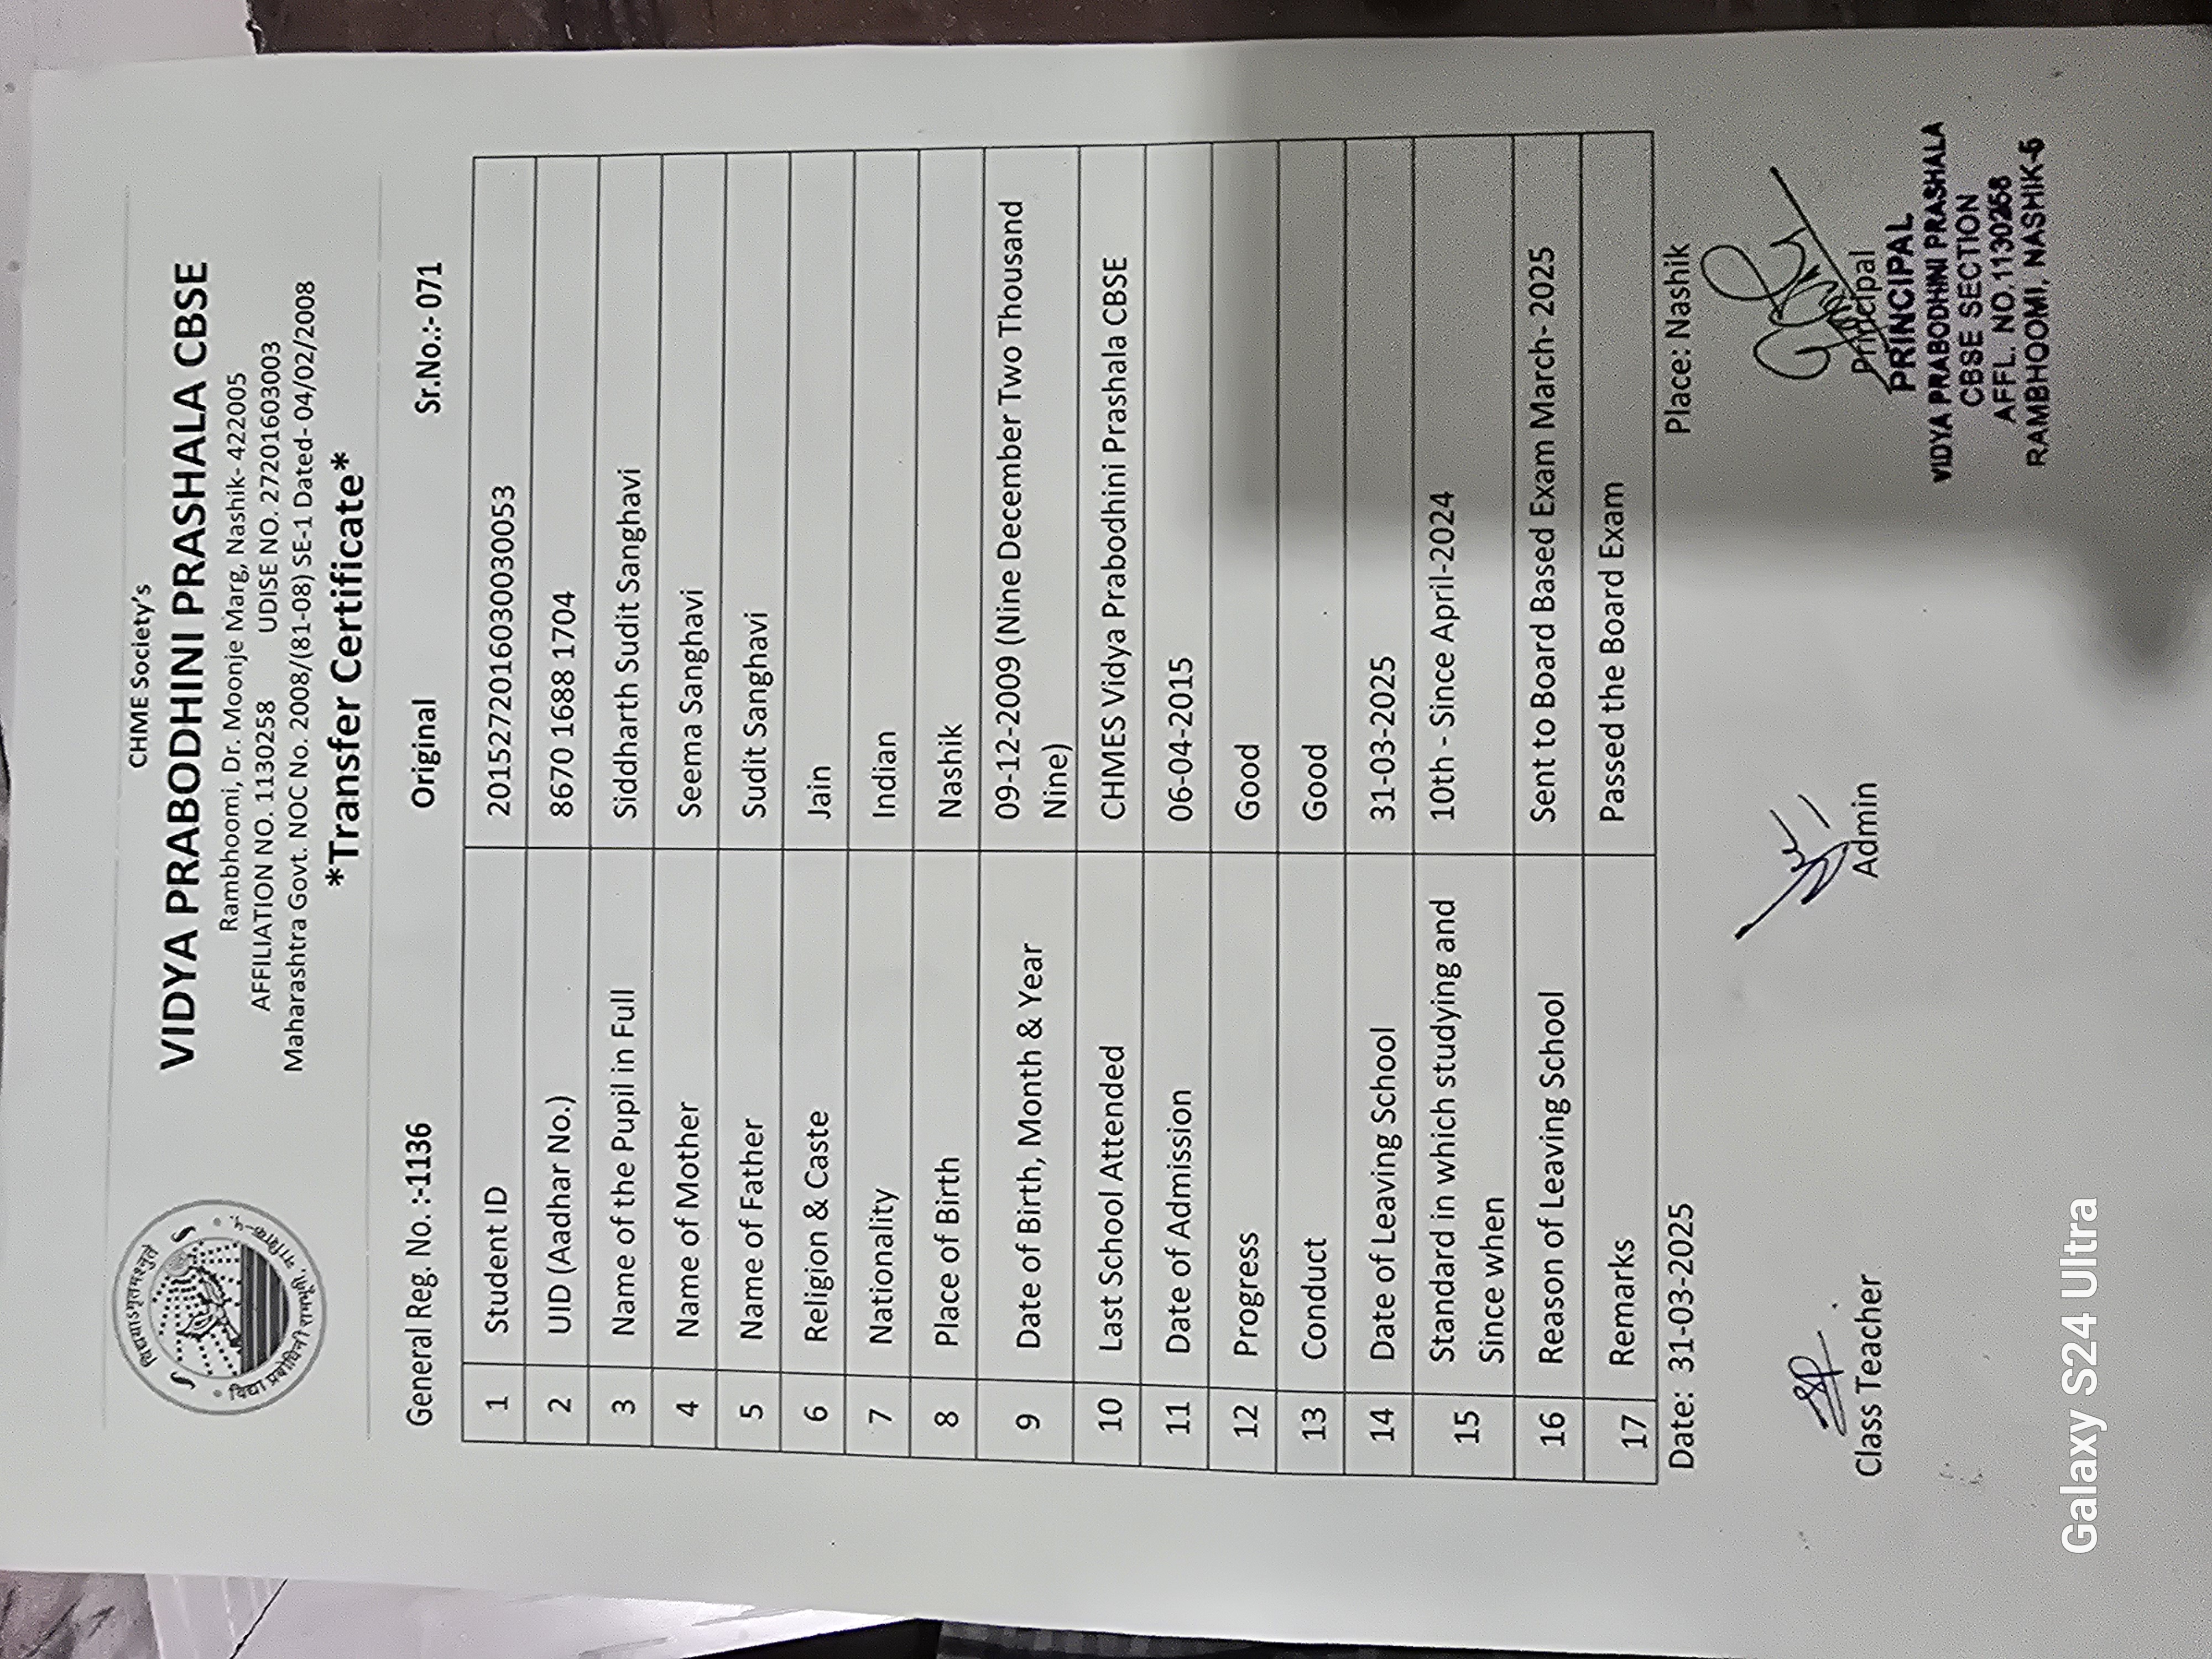 CHME Society's
VIDYA PRABODHINI PRASHALA CBSE
Rambhoomi, Dr. Moonje Marg, Nashik- 422005
AFFILIATION NO. 1130258 UDISE NO. 27201603003
Maharashtra Govt. NOC No. 2008/(81-08) SE-1 Dated- 04/02/2008
*Transfer Certificate*
विद्या प्रबोधिनी
General Reg. No. :-1136 Original Sr.No.:- 071
1 Student ID 2015272016030030053
2 UID (Aadhar No.) 8670 1688 1704
3 Name of the Pupil in Full Siddharth Sudit Sanghavi
4 Name of Mother Seema Sanghavi
5 Name of Father Sudit Sanghavi
6 Religion & Caste Jain
7 Nationality Indian
8 Place of Birth Nashik
9 Date of Birth, Month & Year 09-12-2009 (Nine December Two Thousand
Nine)
10 Last School Attended CHMES Vidya Prabodhini Prashala CBSE
11 Date of Admission 06-04-2015
12 Progress Good
13 Conduct Good
14 Date of Leaving School 31-03-2025
15 Standard in which studying and 10th - Since April-2024
Since when
16 Reason of Leaving School Sent to Board Based Exam March- 2025
17 Remarks Passed the Board Exam
Date: 31-03-2025 Place: Nashik
Class Teacher Admin Principal
PRINCIPAL
VIDYA PRABODHINI PRASHALA
CBSE SECTION
AFFL. NO.1130258
RAMBHOOMI, NASHIK-5
Galaxy S24 Ultra